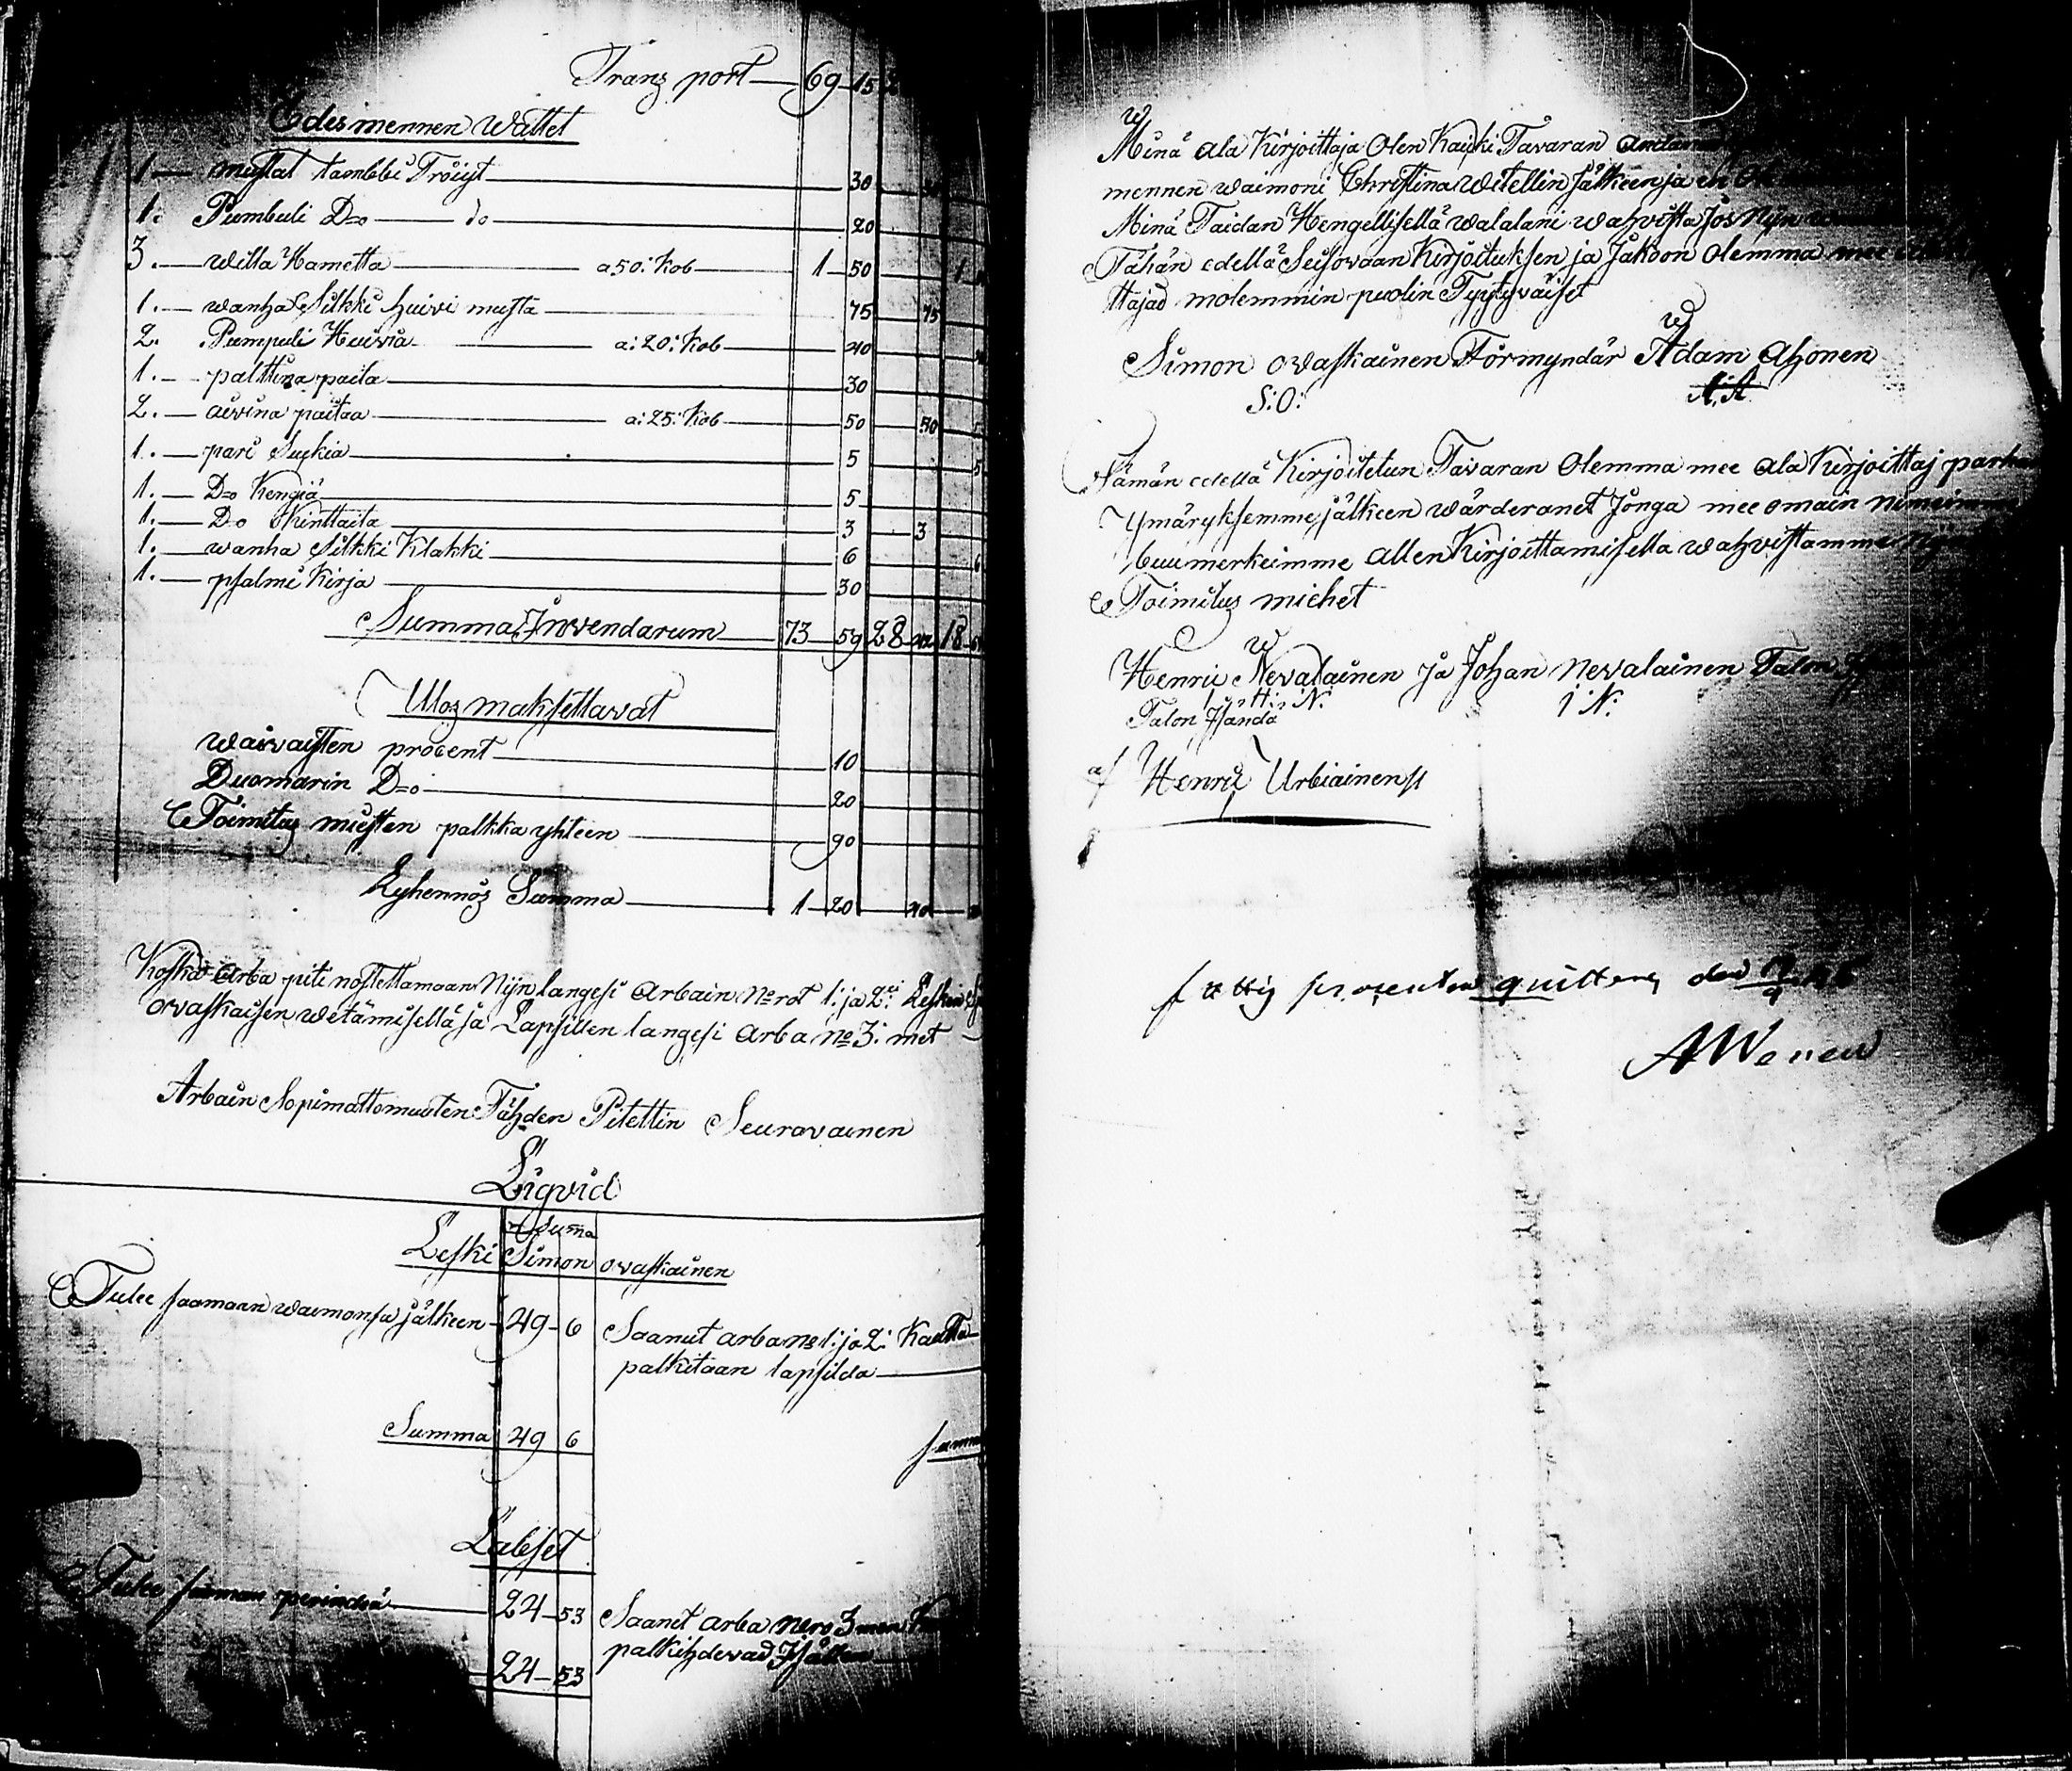 Tranz port — 69 15
Edesmennen wattet
1 — mustat kambbi Tröijt — 30
1: Pumbuli D=o — do — 20
3. — willa Hametta — a 50: Kob — 1 — 50
1. — wanha Silkki huivi musta — 75 75
2. Pumpuli Huivia — a: 20: Kob — 40
1. — palttina paita — 30
2. — aivina paitaa — a: 25: Kob — 50 50
1. — pari Sukia — 5
1. — D=o Kengiä — 5
1. — D=o Kinttaita — 3 3
1. — wanha Silkki Klakki — 6 6
1. — psalmi Kirja — 30
Summa Inwendarum — 73 — 59 28 18
Ulos maksettavat
waivaisten procent — 10
Duomarin D=o — 20
Toimitus miesten palkka yhteen — 90
Lyhennös Summa — 1 — 20
Koska Arba piti nostettamaan Nijn langesi Arbain N:rot 1: ja 2: Lesken
ovaskaisen wetämisellä ja Lapsillen langesi Arba No 3: met
Arbain Sopimattomuuten Tähden Pitettin Seuravainen
Liqvid
Suma
Leski Simon ovaskainen
Tulee saamaan waimonsa jälkeen — 49 — 6 Saanut arba No 1: ja 2: Kautta
palkitaan lapsilda —
Summa 49 6
Labset
Tulee perindöä — 24 — 53 Saanet arba Nero 3
palkihdevad
24 — 53
Minä ala Kirjoittaja Olen Kaiki Tavaran
mennen waimoni Christina Witellin Jälkeen ja en
Minä Taidan Hengellisellä walalani wahvista Jos Nijn
Tähän edellä Seisovaan Kirjoituksen ja Jakoon Olemma mee
ttajad molemmin puolin Tyytyväiset
Simon ovaskainen Förmyndär Adam Ahonen
S: O: A: A
Tämän edellä Kirjoitetun Tavaran Olemma mee ala Kirjoittaj
Ymäryksemme jälkeen wärderanet Jonga mee omain
buumerkeimme allen Kirjoittamisella wahvistamme
Toimitus miehet
Henric Nevalainen Ja Johan Nevalainen Talon
H: N: I N:
Talon Isändä
af Henric Urbiainen
fattig procenten quitteras den
A Wenew